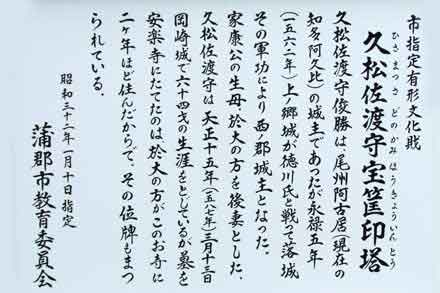 市指定有形文化財
ひさまつさどのかみほうきょういんとう
久松佐渡守宝筐印塔
久松佐渡守俊勝は、尾州阿古居(現在の
知多阿久比)の城主であつたが永禄五年
(一五六二年)上ノ郷城が徳川氏と戦って落城
その軍功により西ノ郡城主となった。
家康公の生母、於大の方を後妻とした。
久松佐渡守は天正十五年(一五八七年)三月十三日
岡崎城で六十四才の生涯をとじているが墓を
安楽寺にたてたのは、於大の方がこのお寺に
二ヶ年ほど住んだからで、その位牌もまつ
られている。
昭和三十二年一月十日指定
蒲郡市教育委員会